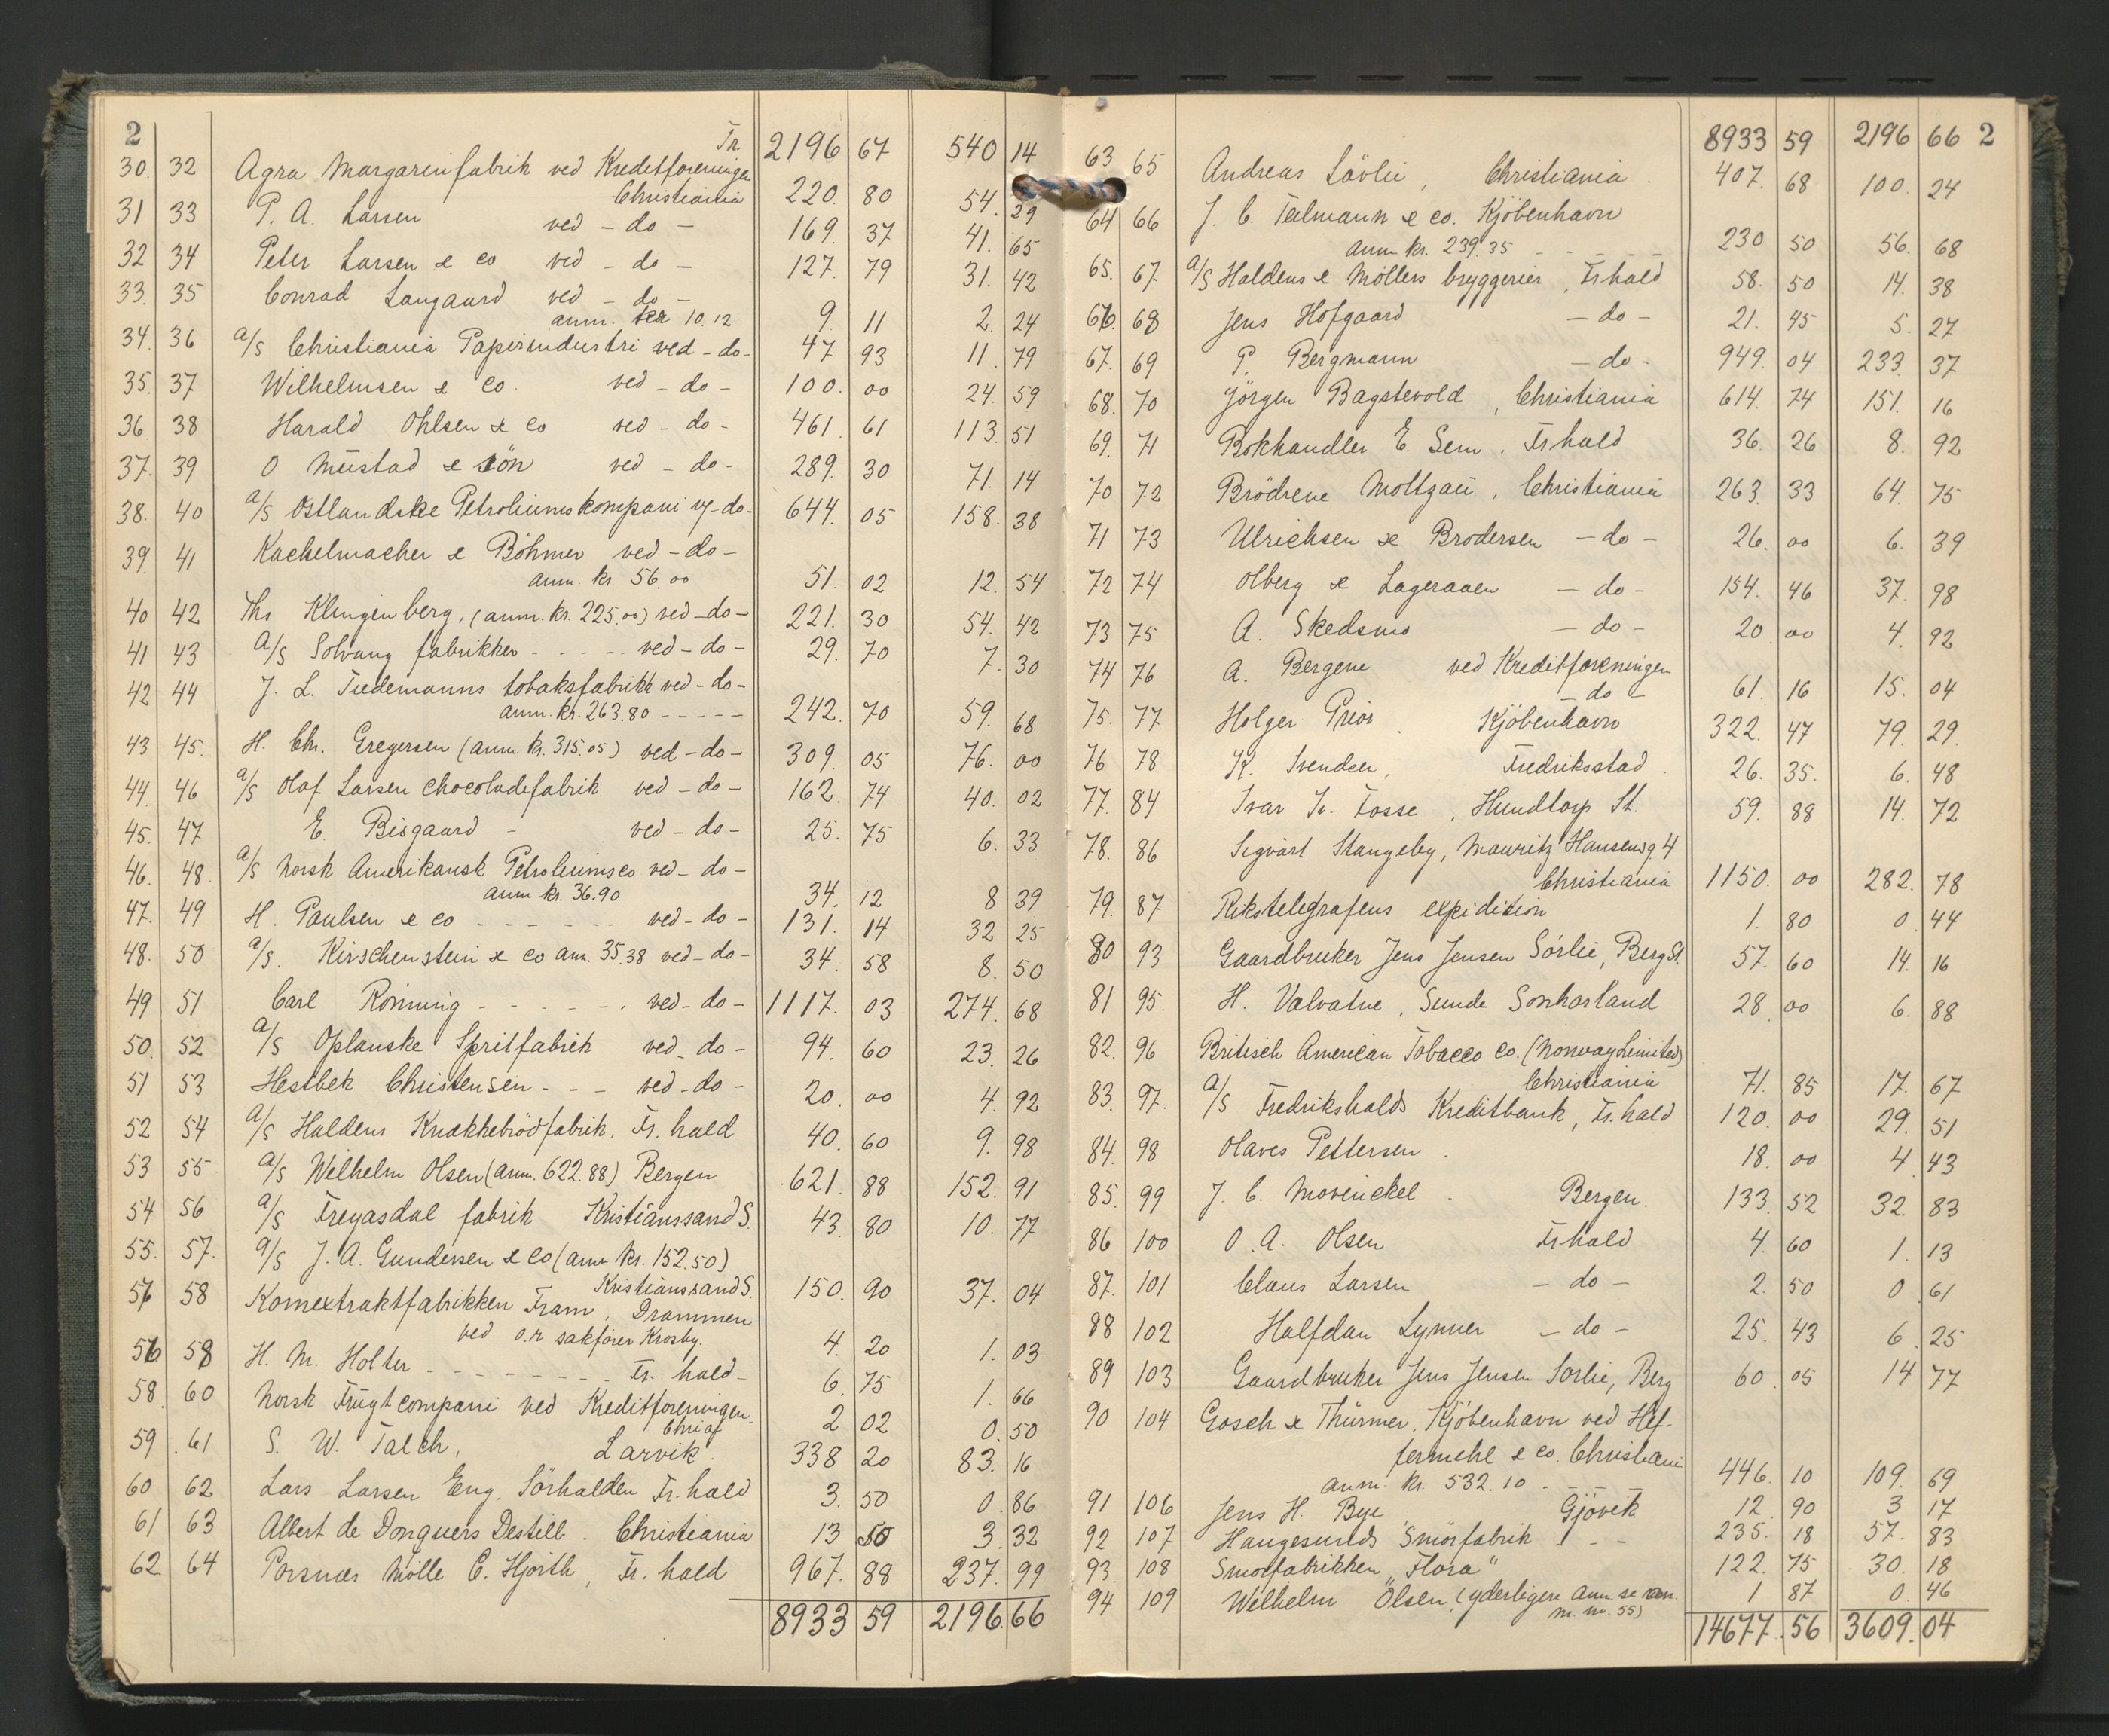 2
Tr. 2196 67 540 14
30. 32 Agra Margarinfabrik ved Kreditforeningen
Christiania 220. 80 54. 29
31 33 P. A. Larsen ved - do - 169. 37 41. 65
32 34 Peter Larsen & co ved - do - 127. 79 31. 42
33. 35 Conrad Langaard ved - do -
anm. 10.12 9. 11 2. 24
34. 36 a/s Christiania Papirindustri ved - do - 47 93 11. 79
35. 37 Wilhelmsen & Co. ved - do - 100. 00 24. 59
36. 38 Harald Ohlsen & Co ved - do - 461. 61 113. 51
37. 39 O Mustad & sön ved - do - 289. 30 71. 14
38. 40 a/s Östlandske Petroliumskompani v/ - do - 644. 05 158. 38
39. 41 Kachelmacher & Böhmer ved - do -
anm. kr. 56.00 51. 02 12. 54
40 42 Ths Klingenberg, (anm. kr. 225.00) ved - do - 221. 30 54. 42
41 43 A/S Solvang fabrikker - - - - - ved - do - 29. 70 7. 30
42 44 J. L. Tiedemanns tobaksfabrikk ved - do -
anm. kr. 263.80 - - - - - 242. 70 59. 68
43 45. H. Chr. Gregersen (anm. kr. 315.05) ved - do - 309. 05 76. 00
44. 46 a/s Olaf Larsen Chocoladefabrik ved - do - 162. 74 40. 02
45. 47 E. Bisgaard - ved - do - 25. 75 6. 33
46. 48. a/s Norsk Amerikansk Petroliumsco ved - do -
anm kr. 36.90 34. 12 8 39
47. 49 H. Paulsen & co - - - - - - ved - do - 131. 14 32 25
48. 50 a/s. Kirschenstein & co anm. 35.38 ved - do - 34. 58 8. 50
49 51 Carl Rönning - - - - - - ved - do - 1117. 03 274. 68
50. 52 a/s Oplanske Spritfabrik ved - do - 94. 60 23. 26
51 53 Hestbek Christensen - - - ved - do - 20. 00 4. 92
52 54 A/S Haldens Knækkebrödfabrik. Fr. hald 40. 60 9. 98
53 55 a/s Wilhelm Olsen (anm. 622.88) Bergen 621. 88 152. 91
54 56 a/s Freyasdal fabrik Kristianssand S. 43. 80 10. 77
55. 57. a/s J. A. Gundersen & Co (anm kr. 152.50)
Kristianssand S. 150. 90 37. 04
57 58 Kornextraktfabrikken Fram, Drammen
ved o.r sakförer Krosby. 4. 20 1. 03
56 58 H. M. Holter - - - - - - - - - Fr. hald - 6. 75 1. 66
58. 60 Norsk Frugtcompani ved Kreditforeningen.
Chria 2 02 0. 50
59 61 S. W. Falch, Larvik. 338 20 83. 16
60 62 Lars Larsen Eng. Sörhalden Fr. hald 3. 50 0. 86
61 63 Albert de Donquers Destill. Christiania 13 50 3. 32
62 64 Porsnæs Mölle C. Hjorth, Fr. hald 967. 88 237. 99
8933 59 2196. 66
8933 59 2196 66 2
63 65 Andreas Lövlie, Christiania. 407. 68 100. 24
64 66 J. C. Teilmann & co. Kjöbenhavn
anm kr. 239.35 - - - - - 230 50 56. 68
65. 67. a/s Haldens & Möllers bryggerier, Fr hald 58. 50 14. 38
66. 68 Jens Hofgaard - do - 21. 45 5. 27
67. 69 P. Bergmann - do - 949. 04 233. 37
68. 70 Jörgen Bagstevold, Christiania 614. 74 151. 16
69. 71 Bokhandler E. Sem, Fr hald 36. 26 8. 92
70 72 Brödrene Moltzau, Christiania 263. 33 64. 75
71 73 Ulrichsen & Brodersen - do - 26. 00 6. 39
72 74 Olberg & Lageraaen - do - 154. 46 37. 98
73 75 A. Skedsmo - do - 20 00 4. 92
74 76 A. Bergene ved Kreditforeningen
- do - 61. 16 15. 04
75. 77 Holger Prior. Kjöbenhavn 322. 47 79. 29.
76 78 K. Svendsen, Fredriksstad 26. 35. 6. 48
77. 84 Ivar Kr. Fosse, Hundtorp St. 59. 88 14. 72
78. 86 Sigvart Stangeby, Mauritz Hansensg 4
Christiania 1150. 00 282. 78
79. 87 Rikstelegrafens expidition 1. 80 0. 44
80 93 Gaardbruker Jens Jensen Sörlie, Berg St. 57. 60 14. 16
81 95. H. Valvatne, Sunde Sönhorland 28. 00 6. 88
82. 96 Britisch American Tobacco Co. (Norway Limited)
Christiania 71. 85 17. 67
83. 97. a/s Fredrikshalds Kreditbank, Fr. hald 120. 00 29. 51
84. 98 Olaves Pettersen. 18. 00 4. 43
85. 99 J. C. Movinckel. Bergen. 133. 52 32. 83
86 100 O. A. Olsen Fr hald 4. 60 1. 13
87. 101 Claus Larsen - do - 2. 50 0. 61
88 102 Halfdan Lynner - do - 25. 43 6. 25
89 103 Gaardbruker Jens Jensen Sorlie, Berg 60. 05 14 77
90 104 Gosch & Thürmer, Kjöbenhavn ved Hef-
fermehl & co. Christiani
anm. kr. 532.10 - - - 446. 10 109. 69
91 106 Jens H. Bye Gjövik 12. 90 3 17
92 107 Haugesunds Smörfabrik - - - 235. 18 57. 83
93. 108 Smörfabrikken „Flora" 122. 75 30. 18
94 109 Wilhelm Olsen, (yderligere anm. se
m. nr. 55) 1 87 0. 46
14677. 56 3609. 04